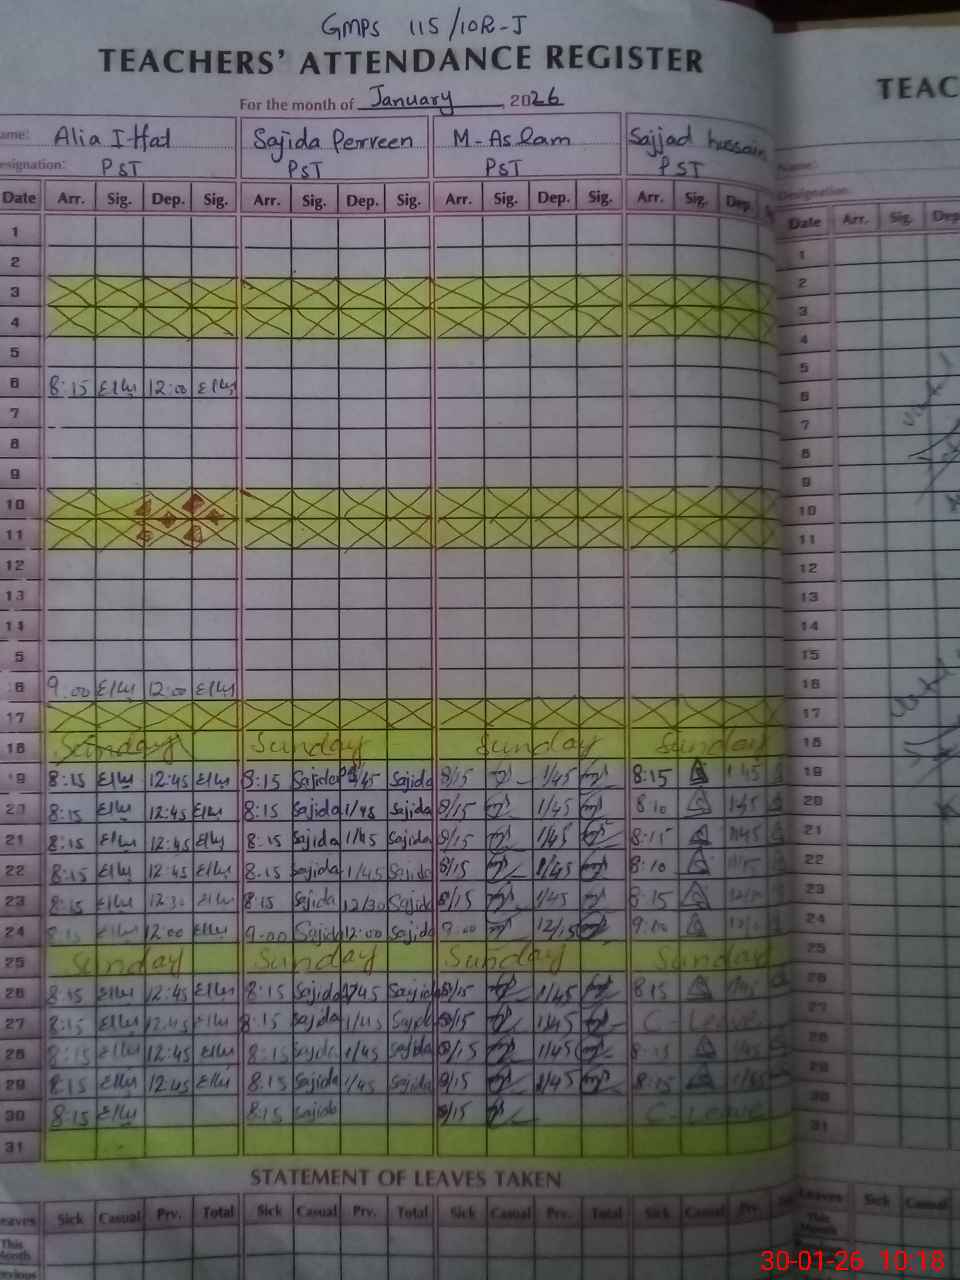 GMPS 115/10R-J
TEACHERS' ATTENDANCE REGISTER
TEAC
For the month of January, 2026
ame: Alia I-Hat Sajida Perveen M-Aslam Sajjad hussain Name:
esignation: PST PST PST PST Designation:
Date Arr. Sig. Dep. Sig. Arr. Sig. Dep. Sig. Arr. Sig. Dep. Sig. Arr. Sig. Dep. Date Arr. Sig. Dep
1 1
2 2
3 3
4 4
5 5
6 8:15 12:00 6
7 7
8 8
9 9
10 10
11 11
12 12
13 13
14 14
5 15
6 9:00 12:00 16
17 17
18 Sunday Sunday Sunday Sunday 18
19 8:15 12:45 8:15 Sajida 1/45 Sajida 8/15 1/45 8:15 1:45 19
20 8:15 12:45 8:15 Sajida 1/45 Sajida 8/15 1/45 8:10 1:45 20
21 8:15 12:45 8:15 Sajida 1/45 Sajida 8/15 1/45 8:15 1:45 21
22 8:15 12:45 8:15 Sajida 1/45 Sajida 8/15 1/45 8:10 22
23 8:15 12:30 8:15 Sajida 12/30 Sajida 8/15 1/45 8:15 23
24 8:15 12:00 9:00 Sajida 12:00 Sajida 9:00 12/15 9:00 24
25 Sunday Sunday Sunday Sunday 25
26 8:15 12:45 8:15 Sajida 1/45 Sajida 8/15 1/45 8:15 1/45 26
27 8:15 12:45 8:15 Sajida 1/45 Sajida 8/15 1/45 C-Leave 27
28 8:15 12:45 8:15 Sajida 1/45 Sajida 8/15 1/45 8:15 1/45 28
29 8:15 12:45 8:15 Sajida 1/45 Sajida 8/15 1/45 8:15 1/45 29
30 8:15 8:15 Sajida 8/15 C-Leave 30
31 31
STATEMENT OF LEAVES TAKEN
eaves Sick Casual Prv. Total Sick Casual Prv. Total Sick Casual Prv. Total Sick Casual Prv. Leaves Sick Casual
This Month This
evious
30-01-26 10:18